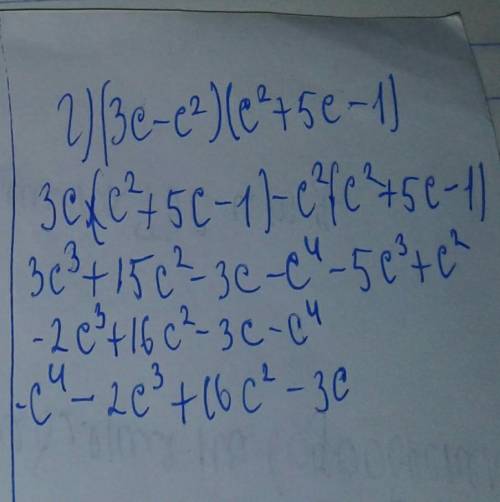 г) (3c-c²)(c²+5c-1)
3c(c²+5c-1)-c²(c²+5c-1)
3c³+15c²-3c-c⁴-5c³+c²
-2c³+16c²-3c-c⁴
-c⁴-2c³+16c²-3c